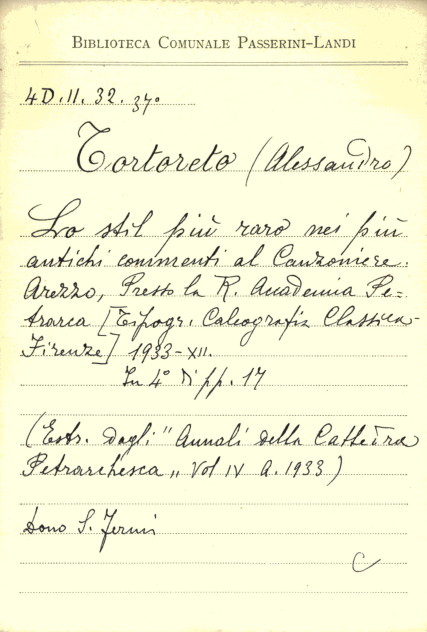 BIBLIOTECA COMUNALE PASSERINI-LANDI
4D.II.32.37°
Tortoreto (Alessandro)
Lo stil più raro nei più
antichi commenti al Canzoniere.
Arezzo, Presso la R. Accademia Pe=
trarca [Tipogr. Calcografia Classica-
Firenze] 1933-XII.
In 4° di pp. 17
(Estr. dagli "Annali della Cattedra
Petrarchesca" Vol IV A. 1933)
Dono S. Fermi
C